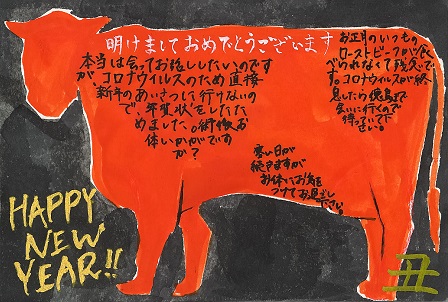 明けましておめでとうございます
本当は会ってお話ししたいのです
が、コロナウイルスのため直接
新年のあいさつに行けないの
で、年賀状をしたた
めました。御体お
体いかがです
か?
お正月のいつもの
ローストビーフが食
べられなくて残念で
す。コロナウイルスが終
息したら徳島まで
会いに行くので
待っていて下
さい。
寒い日が
続きますが
お体にお気を
つけてお過ごし
下さい。
HAPPY
NEW
YEAR!!
丑